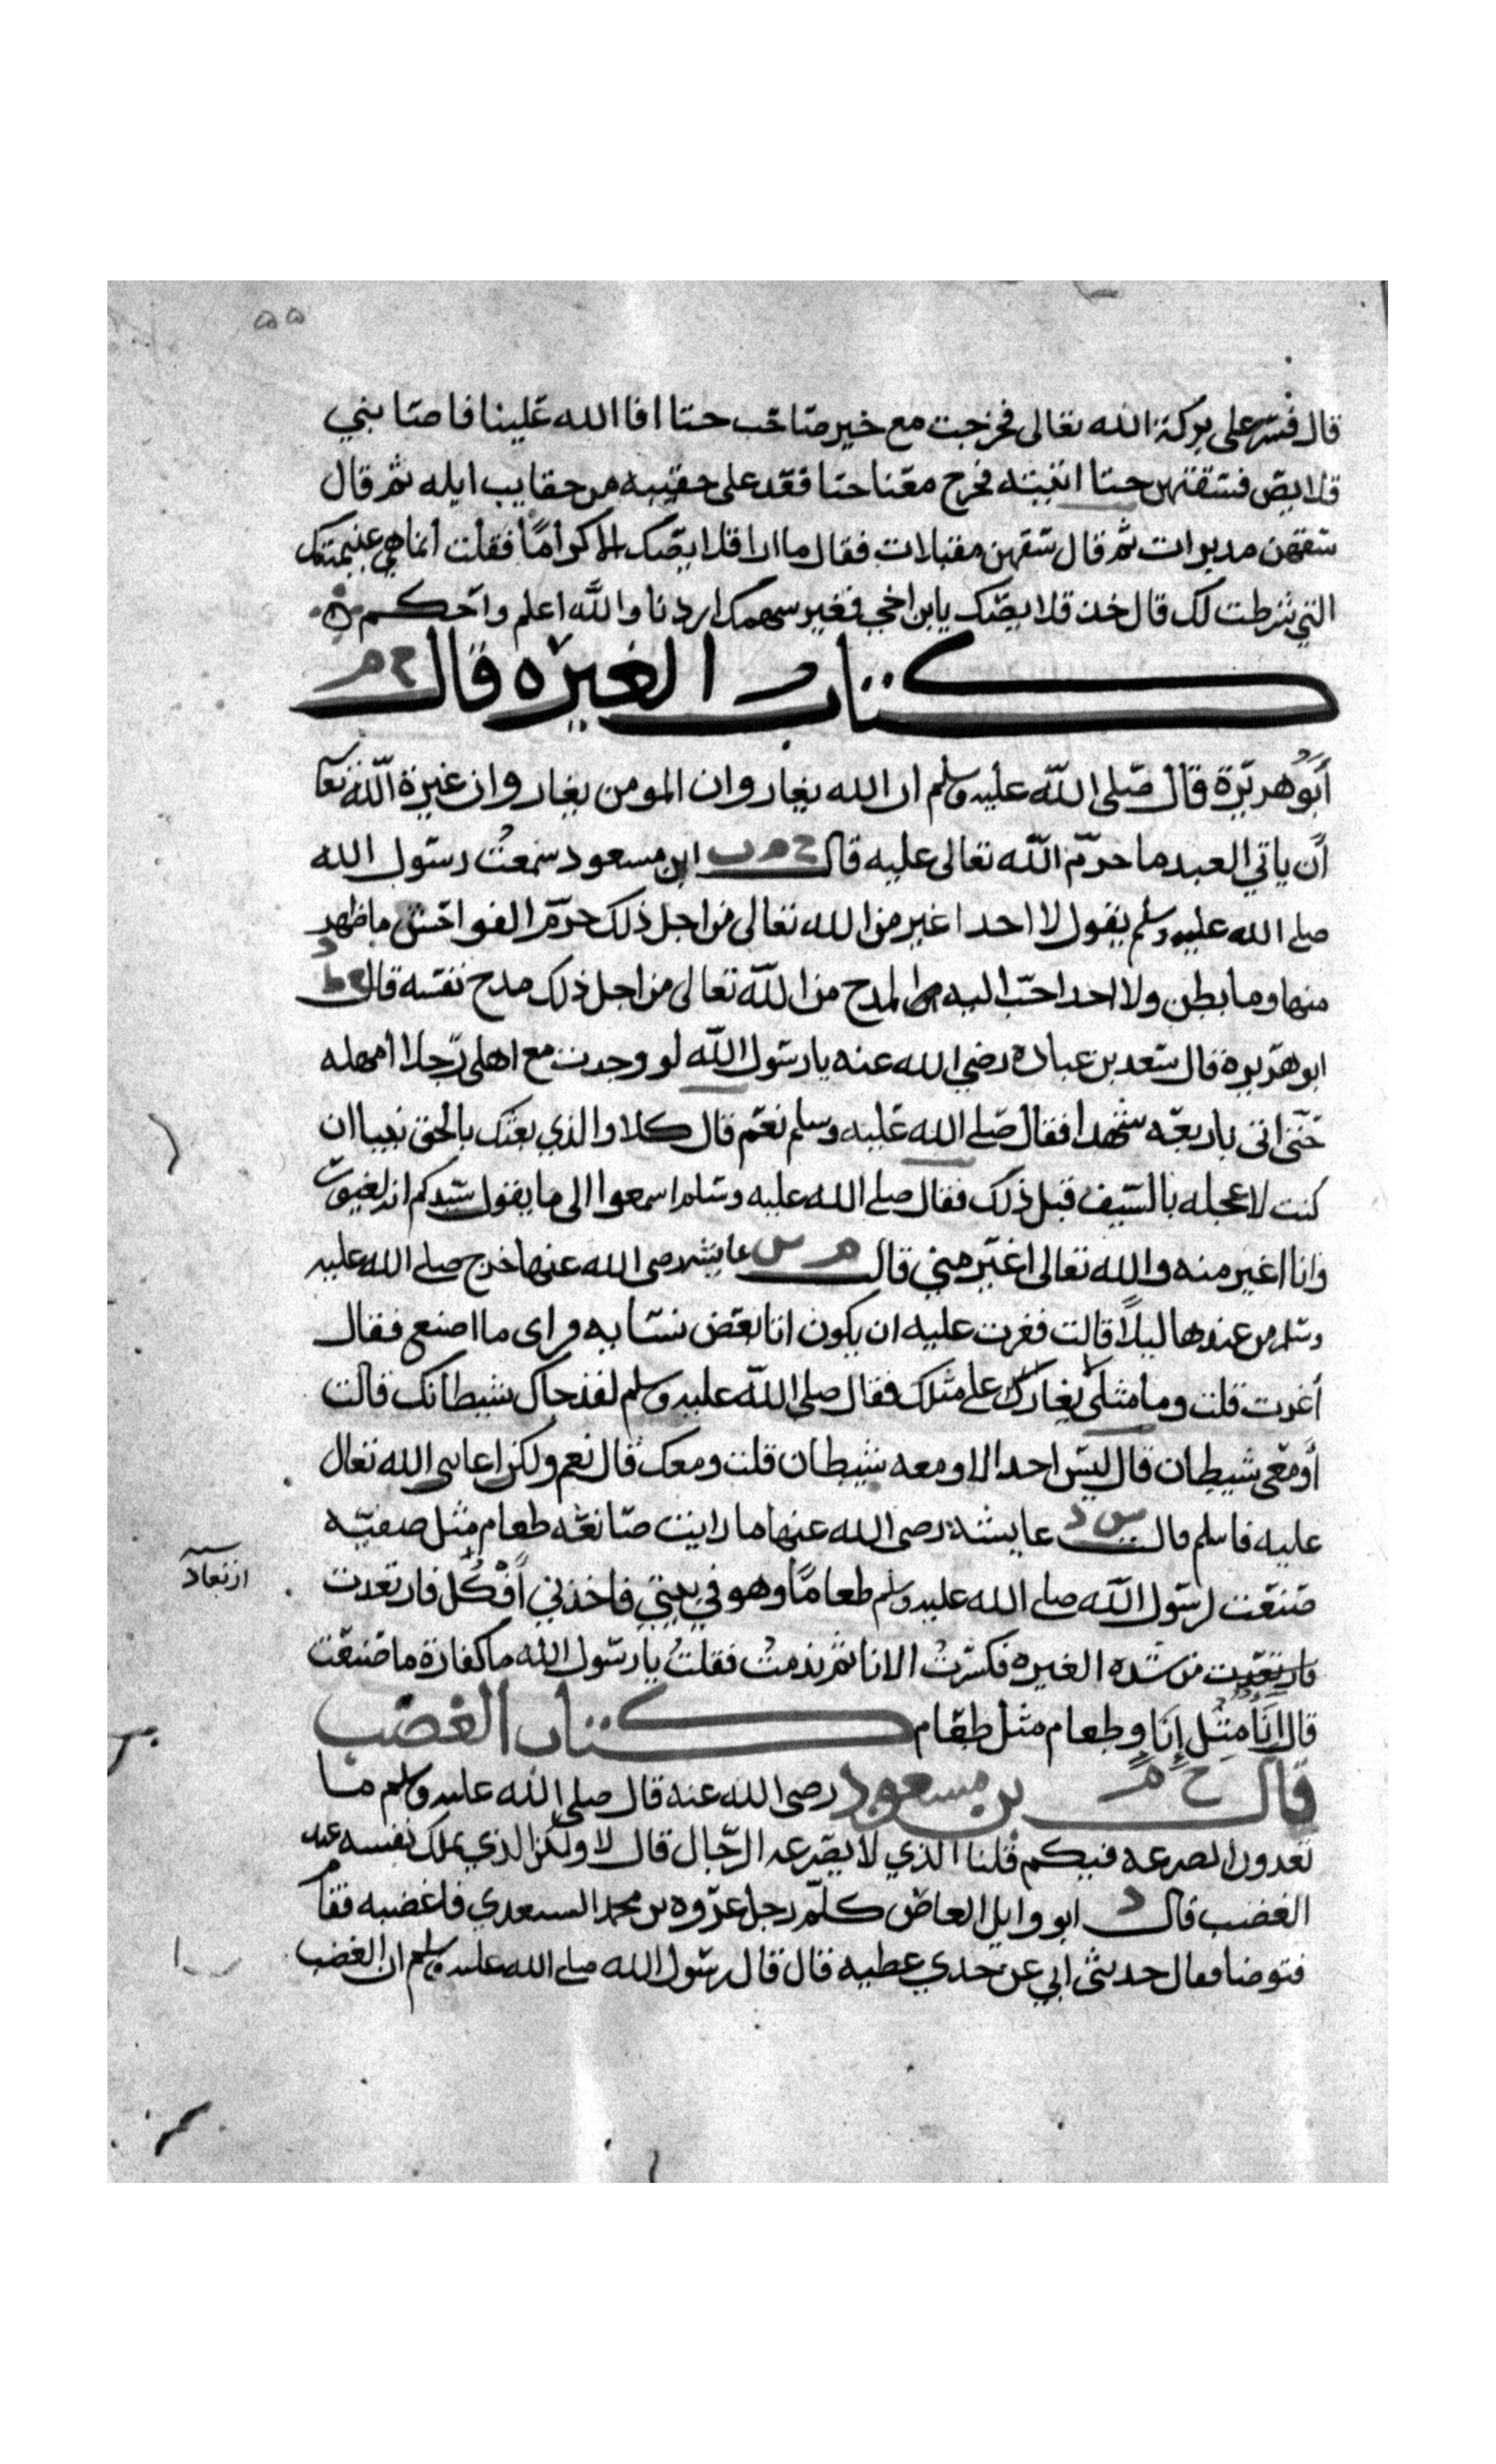 ٥٥
قال فسر على بركة الله تعالى فخرجت مع خير صاحب حتا افا الله علينا فاصابني
قلايص فسقتهن حتا اتيته فخرج معنا حتا فقعد على حقيبه من حقايب ابله ثم قال
سقهن مدبرات ثم قال سقهن مقبلات فقال ما ارا قلايصك الا كراما فقلت انما هي غنيمتك
التي شرطت لك قال خذ قلايصك يابن اخي فغير سهمك اردنا والله اعلم واحكم
كتاب الغيره قال خ م
أبو هريرة قال صلى الله عليه وسلم ان الله يغار وان المومن يغار وان غيرة الله تعا
أن ياتي العبد ما حرم الله تعالى عليه قال خ م ت ابن مسعود سمعت رسول الله
صلى الله عليه وسلم يقول لا احد اغير من الله تعالى من اجل ذلك حرم الفواحش ما ظهر
منها وما بطن ولا احد احب اليه المدح من الله تعالى من اجل ذلك مدح نفسه قال م ط د
ابو هريرة قال سعد بن عباده رضي الله عنه يا رسول الله لو وجدت مع اهلي رجلا أمهله
حتى اتى باربعه شهدا فقال صلى الله عليه وسلم نعم قال كلا والذي بعثك بالحق نبيا ان
كنت لاعجله بالسيف قبل ذلك فقال صلى الله عليه وسلم اسمعوا الى ما يقول سيدكم انه لغيور
وانا اغير منه والله تعالى اغير مني قال م س عايشه رضى الله عنها خرج صلى الله عليه
وسلم من عندها ليلا قالت فغرت عليه ان يكون اتا بعض نسايه فراى ما اصنع فقال
أغرت قلت وما مثلى يغار على مثلك فقال صلى الله عليه وسلم لقد جاك شيطانك قالت
أو معى شيطان قال ليس احد الا ومعه شيطان قلت ومعك قال نعم ولكن اعانى الله تعال
عليه فاسلم قال س د عايشة رضى الله عنها ما رايت صانعه طعام مثل صفيه
صنعت لرسول الله صلى الله عليه وسلم طعاما وهو في بيتي فاخذني أفكل فارتعدت
ارتعاد
فارتعدت من شده الغيره فكسرت الانا ثم ندمت فقلت يا رسول الله ما كفارة ما صنعت
قال انا مثل إنا وطعام مثل طعام كتاب الغضب
قال خ م بن مسعود رضى الله عنه قال صلى الله عليه وسلم ما
تعدون الصرعه فيكم قلنا الذي لا يصرعه الرجال قال لا ولكن الذي يملك نفسه عند
الغضب قال د ابو وايل العاص كلم رجل عروه بن محمد السعدي فاغضبه فقام
فتوضا فقال حدثنى ابي عن جدي عطيه قال قال رسول الله صلى الله عليه وسلم ان الغضب